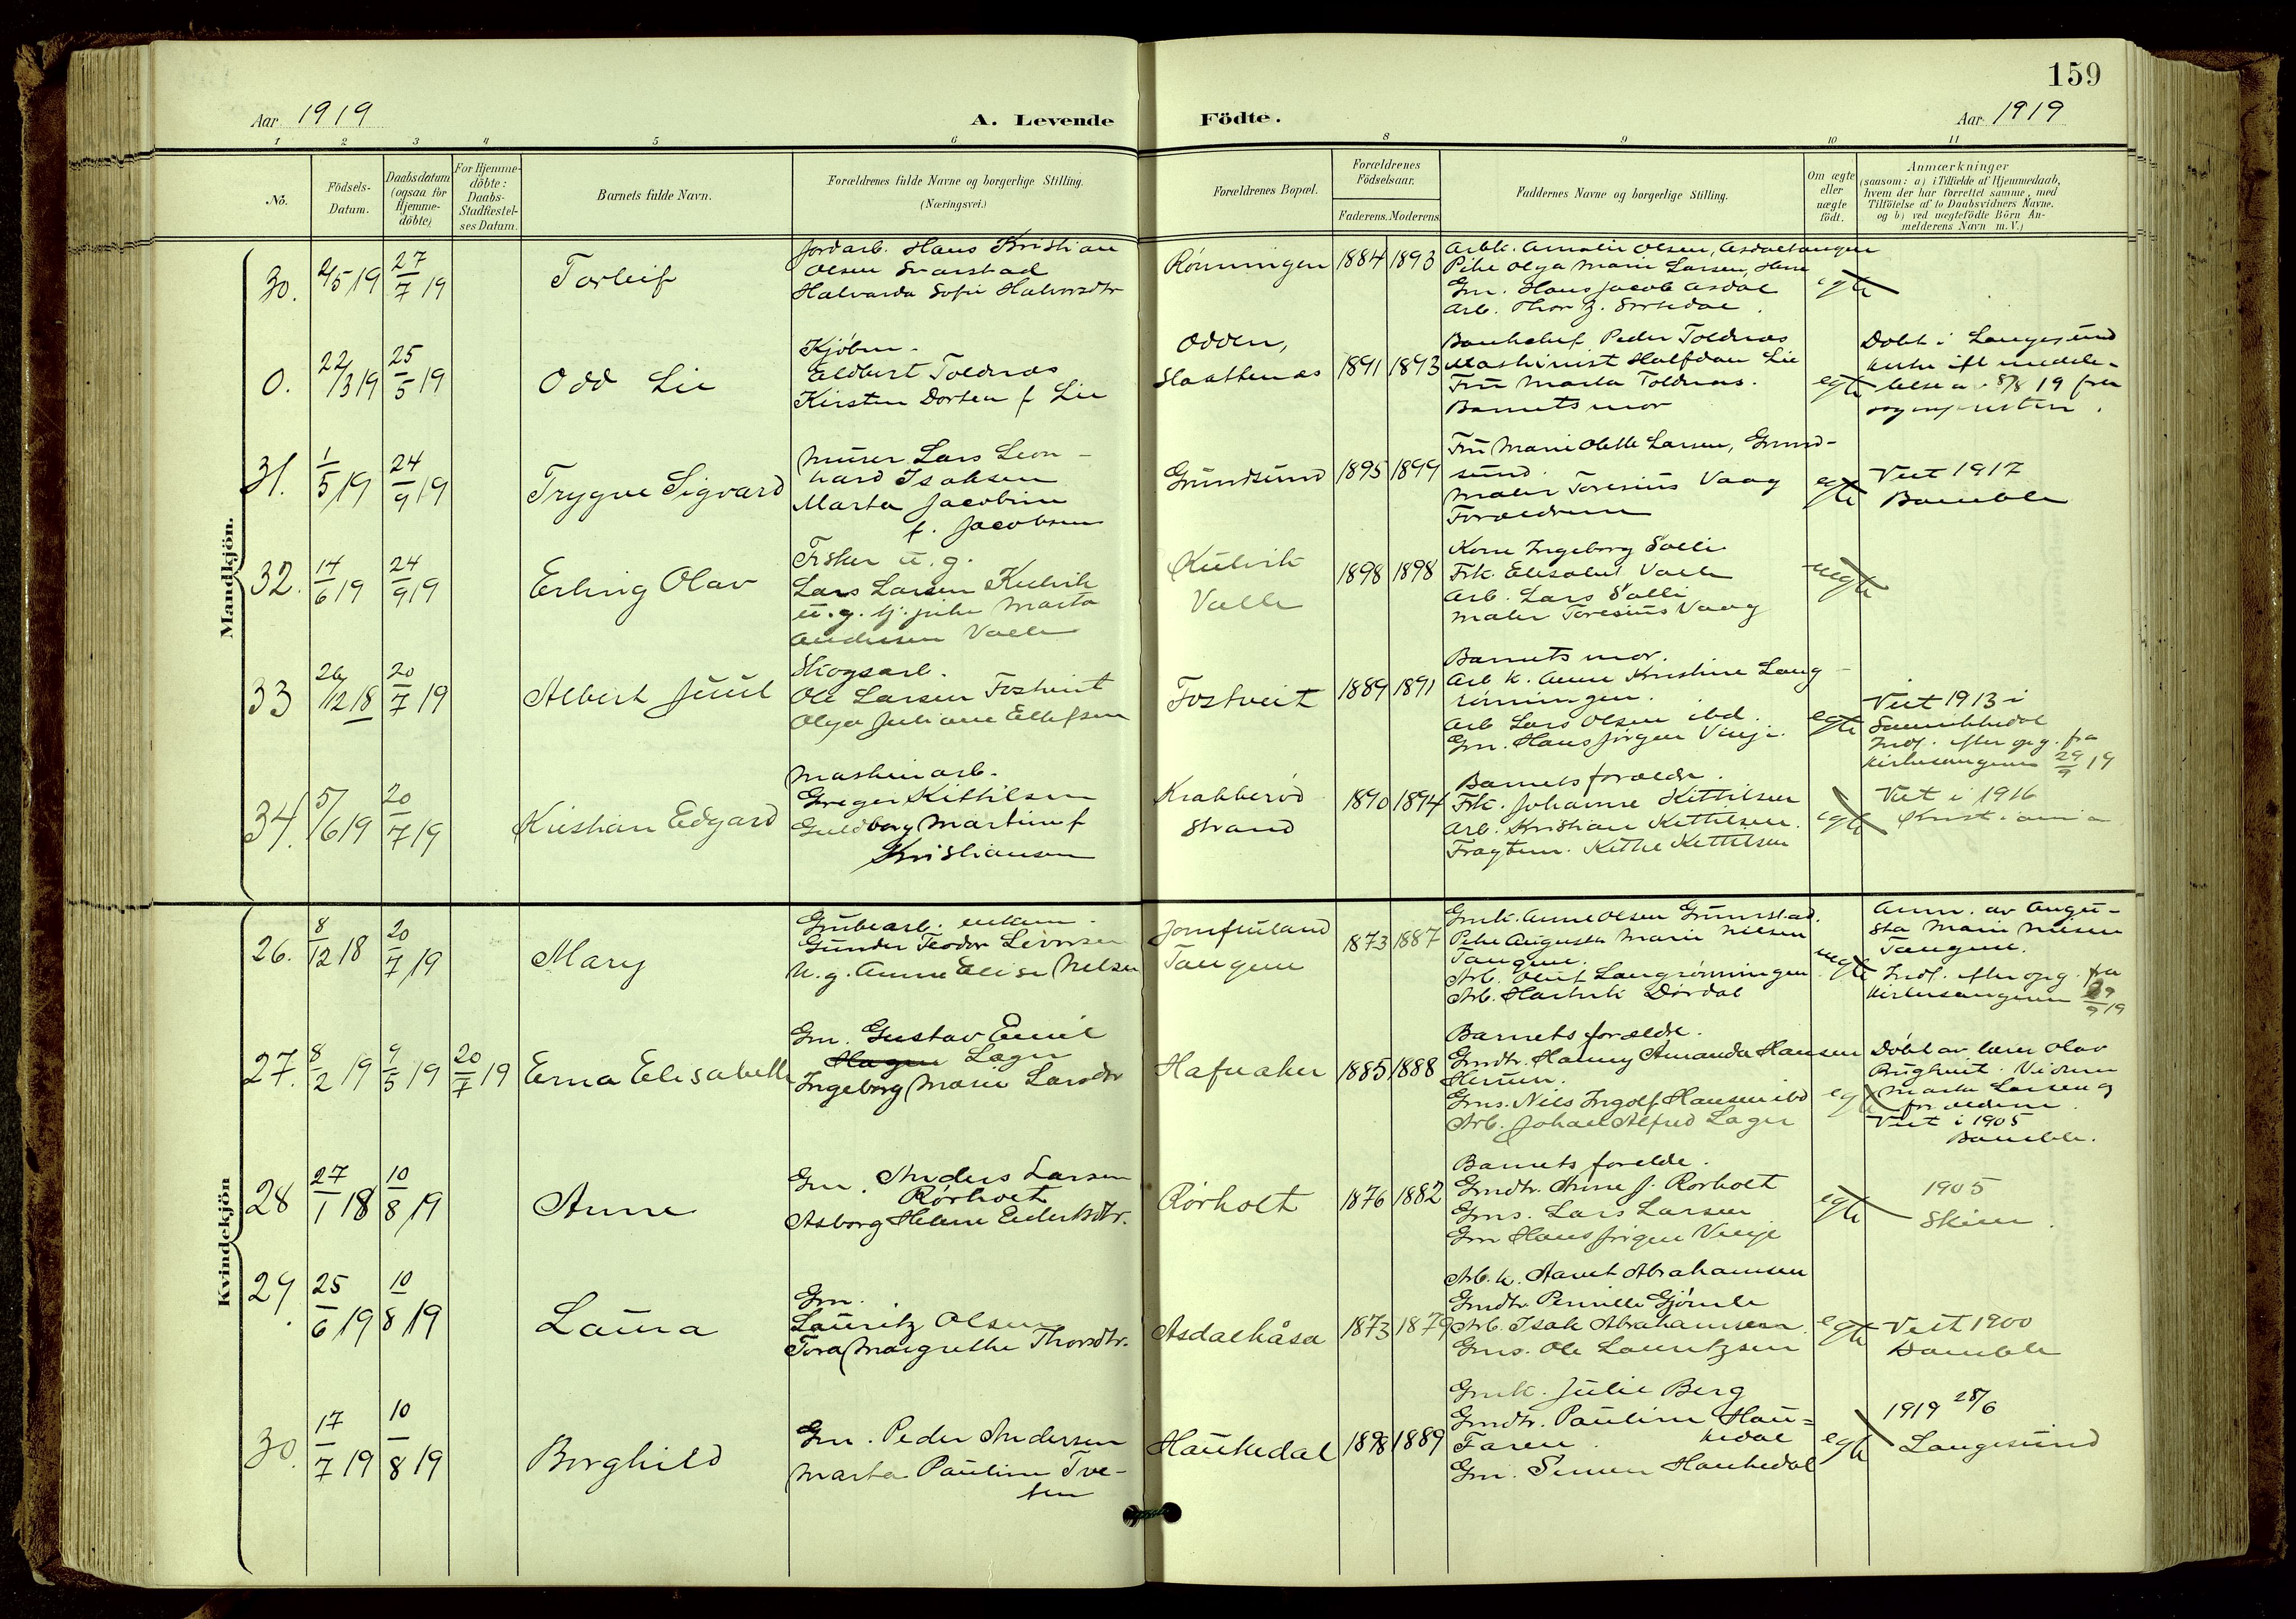 159
Aar 1919
A. Levende
Födte.
Aar 1919
1 2 3 4 5 6 8 9 10 11
No.
Födsels-
Datum.
Daabsdatum
(ogsaa for
Hjemme-
döbte)
For Hjemme-
döbte:
Daabs-
Stadfæstel-
ses Datum.
Barnets fulde Navn.
Forældrenes fulde Navne og borgerlige Stilling.
(Næringsvei.)
Forældrenes Bopæl.
Forældrenes
Födselsaar.
Faderens. Moderens
Faddernes Navne og borgerlige Stilling.
Om ægte
eller
uægte
födt.
Anmærkninger
(saasom: a) i Tilfælde af Hjemmedaab,
hvem der har forrettet samme, med
Tilföielse af to Daabsvidners Navne.
og b) ved uægtefödte Börn An-
melderens Navn m. V.)
Mandkjön.
30. 2/5 19 27/7 19
Torleif
Jordarb. Hans Kristian
Olsen Svarstad
Halvarda Sofie Halvorsdtr
Rönningen 1884 1893
Arbk. Amalie Olsen, Asdaltangen
Pike Olga Marie Larsen,
Gm. Hans Jacob Asdal
Arb. Thor J.
egte
0. 22/3 19 25/5 19
Odd Lie
Kjöbm.
Eldbert Toldnæs
Kirsten Dortea f Lie
Odden,
Slaattenæs 1891 1893
Bankchef Peder Toldnæs
Maskinist Halfdan Lie
Frü Marta Toldnæs.
Barnets mor
egte
Döbt i Langesünd
kirke ifl meddel-
else av 8/8 19 fra
sognepresten.
31. 1/5 19 24/9 19
Trygve Sigvard
Mürer Lars Leon-
hard Isaksen
Marta Jacobine
f. Jacobsen
Gründsünd 1895 1899
Frü Marie Olette Larsen, Grund-
sünd.
Maler Toresius Vaag
Forældrene
egte
Viet 1917
Bamble
32. 14/6 19 24/9 19
Erling Olav
Fisker ü. g.
Lars Larsen Külvik
ü. g. tj. pike Marta
Andersen Valle
Külvik
Valle
1898 1898
Kone Ingeborg Salli
Frk. Elisabet Valle
Arb. Lars Salli
Maler Toresius Vaag
uegte
33 26/12 18 20/7 19
Albert Juül
Skogsarb.
Ole Larsen Fostveit
Olga Juliane Ellefsen
Fostveit 1889 1891
Barnets mor.
Arb k. Anne Kristine Lang-
rönningen.
Arb Lars Olsen ibd.
Gm. Hans Jörgen Vinje.
egte
Viet 1913 i
Sannikkedal
Indf. efter opg. fra
kirkesangeren 29/9 19
34. 5/6 19 20/7 19
Kristian Edgard
Maskinarb.
Greger Kittilsen
Guldborg Martine f
Kristiansen
Krabberöd
Strand
1890 1894
Barnets forældre.
Frk. Johanne Kittilsen
Arb. Kristian Kittilsen.
Fragtem. Kittel Kittilsen
egte
Viet i 1916
Kristiania
Kvindekjön
26. 8/12 18 20/7 19
Mary
Grübearb. enkem.
Günder Teodor Levorsen
U. g. Anne Elise Nelsen
Jomfrüland
Tangene
1873 1887
Gmk. Anne Olsen Grümstad.
Pike Augusta Marie Nilsen
Tangene.
Arb. Oluf Langrönningen
Arb. Hartvik Dördal
uegte
Anm. av Augu-
sta Marie Nilsen
Tangene.
Indf. efter opg. fra
kirkesangeren 29/9 19
27. 8/2 19 9/5 19 20/7 19
Erna Elisabeth
Gm. Gustav Emil
Hagen Lager
Ingeborg Marie Larsdtr
Hafsaker 1885 1888
Barnets forældre.
Gmdtr. Hanny Amanda Hansen
Gms. Nils Ingolf Hansen ibd
Arb. Johan Alfred Lager
egte
Döbt av lærer Olav
Vidner
Marta Larsen og
forældrene.
Viet i 1905
Bamble.
28 27/1 18 10/8 19
Anne
Gm. Anders Larsen
Rörholt
Asborg Helene Eriksdtr.
Rörholt 1876 1882
Barnets forelde.
Gmdtr. Anne J. Rorholt
Gms. Lars Larsen
Gm Hans Jörgen Vinje
egte
1905
Skien.
29. 25/6 19 10/8 19
Laüra
Gm.
Laüritz Olsen
Tora Margrethe Thorsdtr.
Asdalhåsa 1873 1879
Arb. k. Aanet Abrahamsen
Gmdtr. Pernille Gjömle
Arb. Isak Abrahamsen.
Gms. Ole Lauritzsen
egte
Viet 1900
Bamble
30. 17/7 19 10/8 19
Borghild
Gm. Peder Andersen
Marta Pauline Tve-
ten
Haükedal 1898 1889
Gmk. Julie Berg
Gmdtr. Pauline Hau-
kedal
Faren.
Gm. Simen Haukedal
egte
1919 28/6
Langesünd